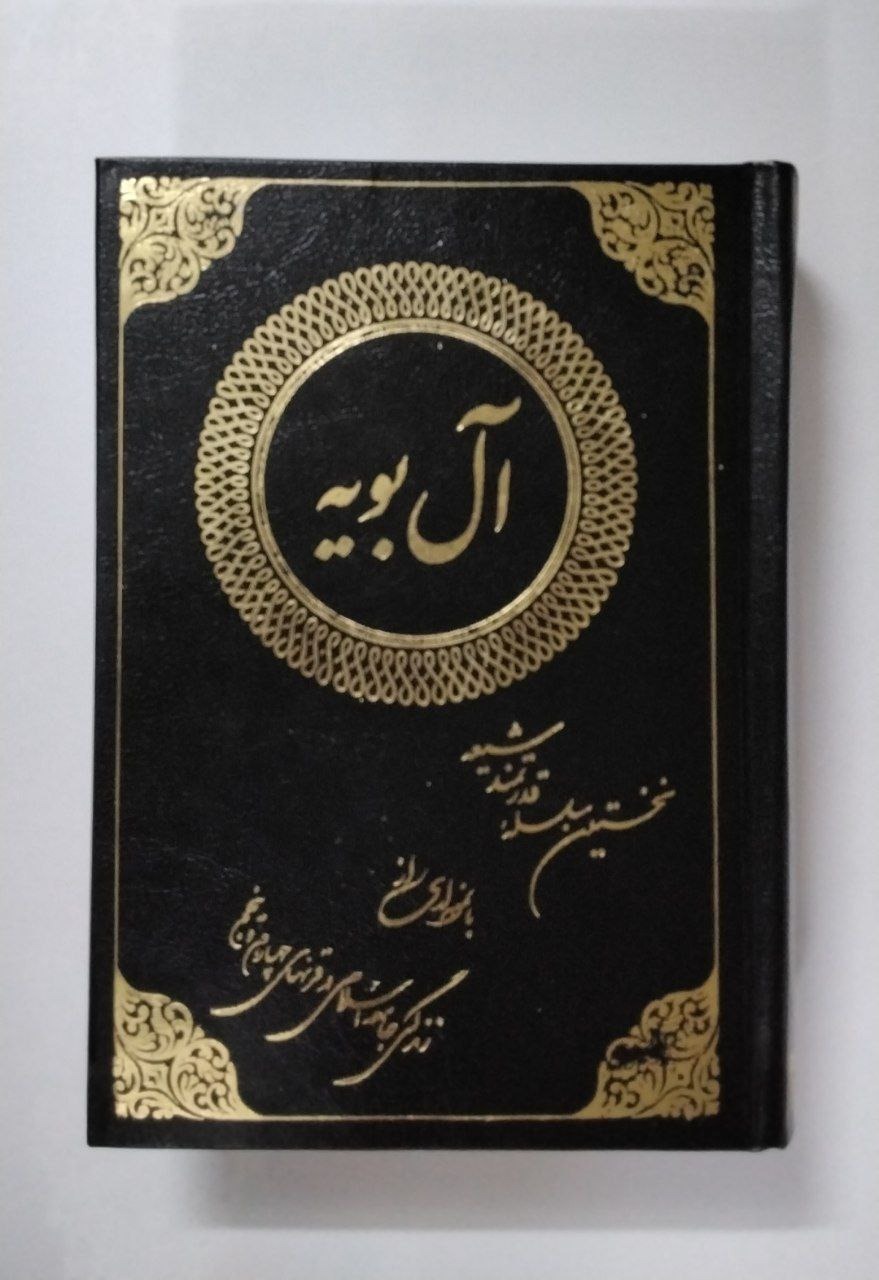 آل بویه
نخستین سلسلهٔ قدرتمند شیعه
با نموداری از
زندگی جامعهٔ اسلامی در قرنهای چهارم و پنجم